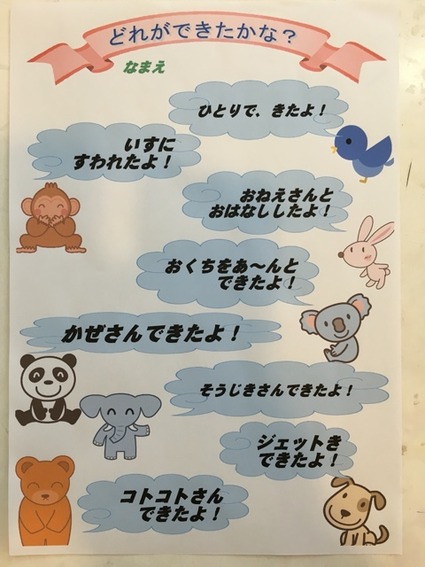 どれができたかな？
なまえ
ひとりで、きたよ！
いすに
すわれたよ！
おねえさんと
おはなししたよ！
おくちをあ～んと
できたよ！
かぜさんできたよ！
そうじきさんできたよ！
ジェットき
できたよ！
コトコトさん
できたよ！